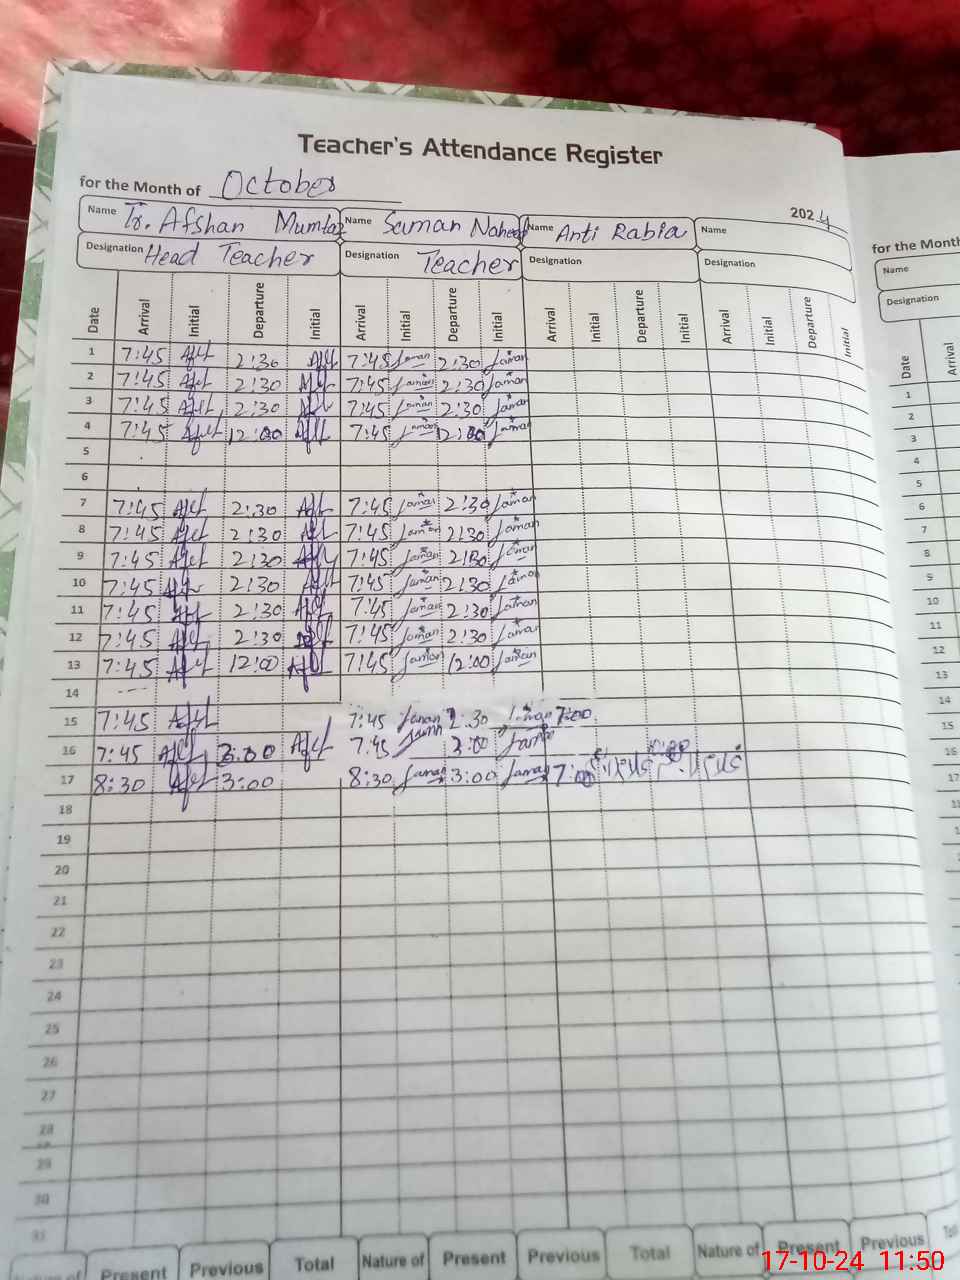 Teacher's Attendance Register
for the Month of October
2024
for the Month
Name Tr. Afshan Mumtaz Name Saman Naheed Name Anti Rabia Name
Name
Designation Head Teacher Designation Teacher Designation Designation
Designation
Date Arrival Initial Departure Initial Arrival Initial Departure Initial Arrival Initial Departure Initial Arrival Initial Departure Initial
Date Arrival
1 7:45 2:30 7:45 Saman 2:30 Saman
2 7:45 2:30 7:45 Saman 2:30 Saman
3 7:45 2:30 7:45 Saman 2:30 Saman
4 7:45 12:00 7:45 Saman 12:00 Saman
5
6
7 7:45 2:30 7:45 Saman 2:30 Saman
8 7:45 2:30 7:45 Saman 2:30 Saman
9 7:45 2:30 7:45 Saman 2:30 Saman
10 7:45 2:30 7:45 Saman 2:30 Saman
11 7:45 2:30 7:45 Saman 2:30 Saman
12 7:45 2:30 7:45 Saman 2:30 Saman
13 7:45 12:00 7:45 Saman 12:00 Saman
14
15 7:45 7:45 Saman 2:30 Saman 7:00
16 7:45 3:00 7:45 Saman 3:00 Saman
17 8:30 3:00 8:30 Saman 3:00 Saman 7:00
18
19
20
21
22
23
24
25
26
27
28
29
30
31
1
2
3
4
5
6
7
8
9
10
11
12
13
14
15
16
17
Nature of Present Previous Total Nature of Present Previous Total Nature of Present Previous
17-10-24 11:50